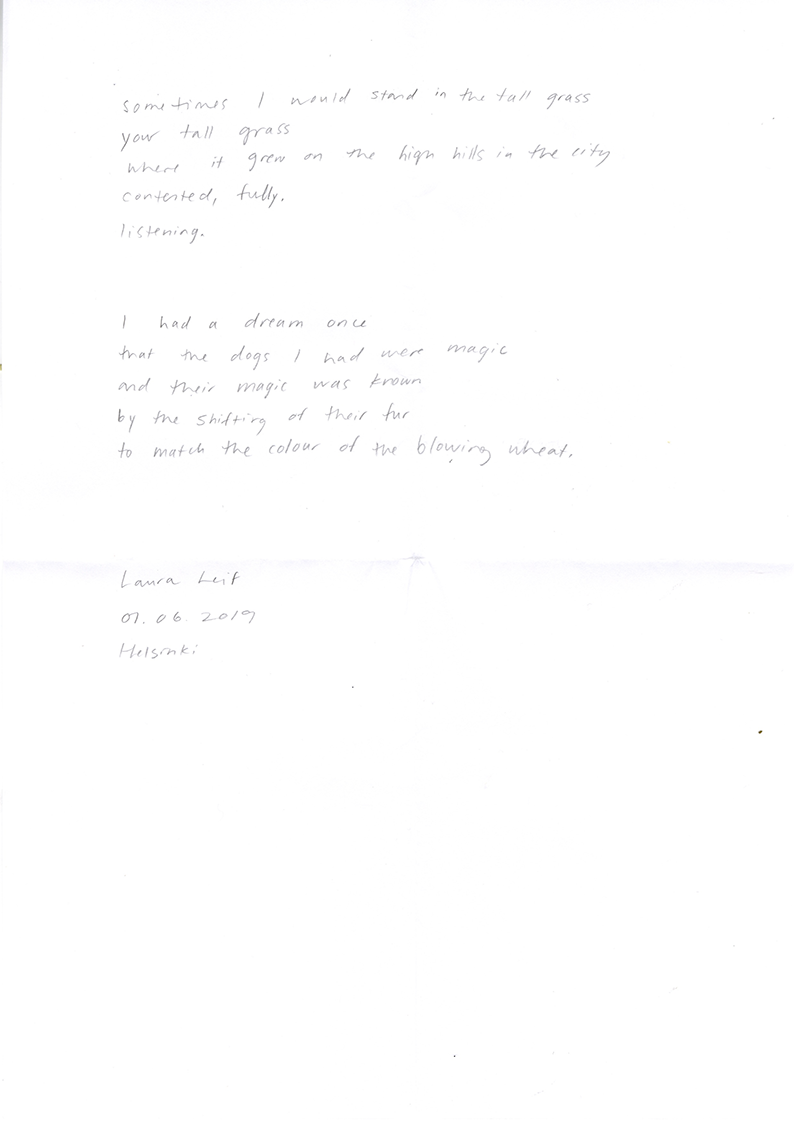 sometimes I would stand in the tall grass
your tall grass
where it grew on the high hills in the city
contented, fully.
listening.
I had a dream once
that the dogs I had were magic
and their magic was known
by the shifting of their fur
to match the colour of the blowing wheat.
Laura Leif
01.06.2019
Helsinki